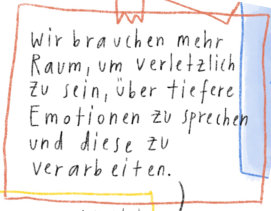 Wir brauchen mehr
Raum, um verletzlich
zu sein, über tiefere
Emotionen zu sprechen
und diese zu
verarbeiten.